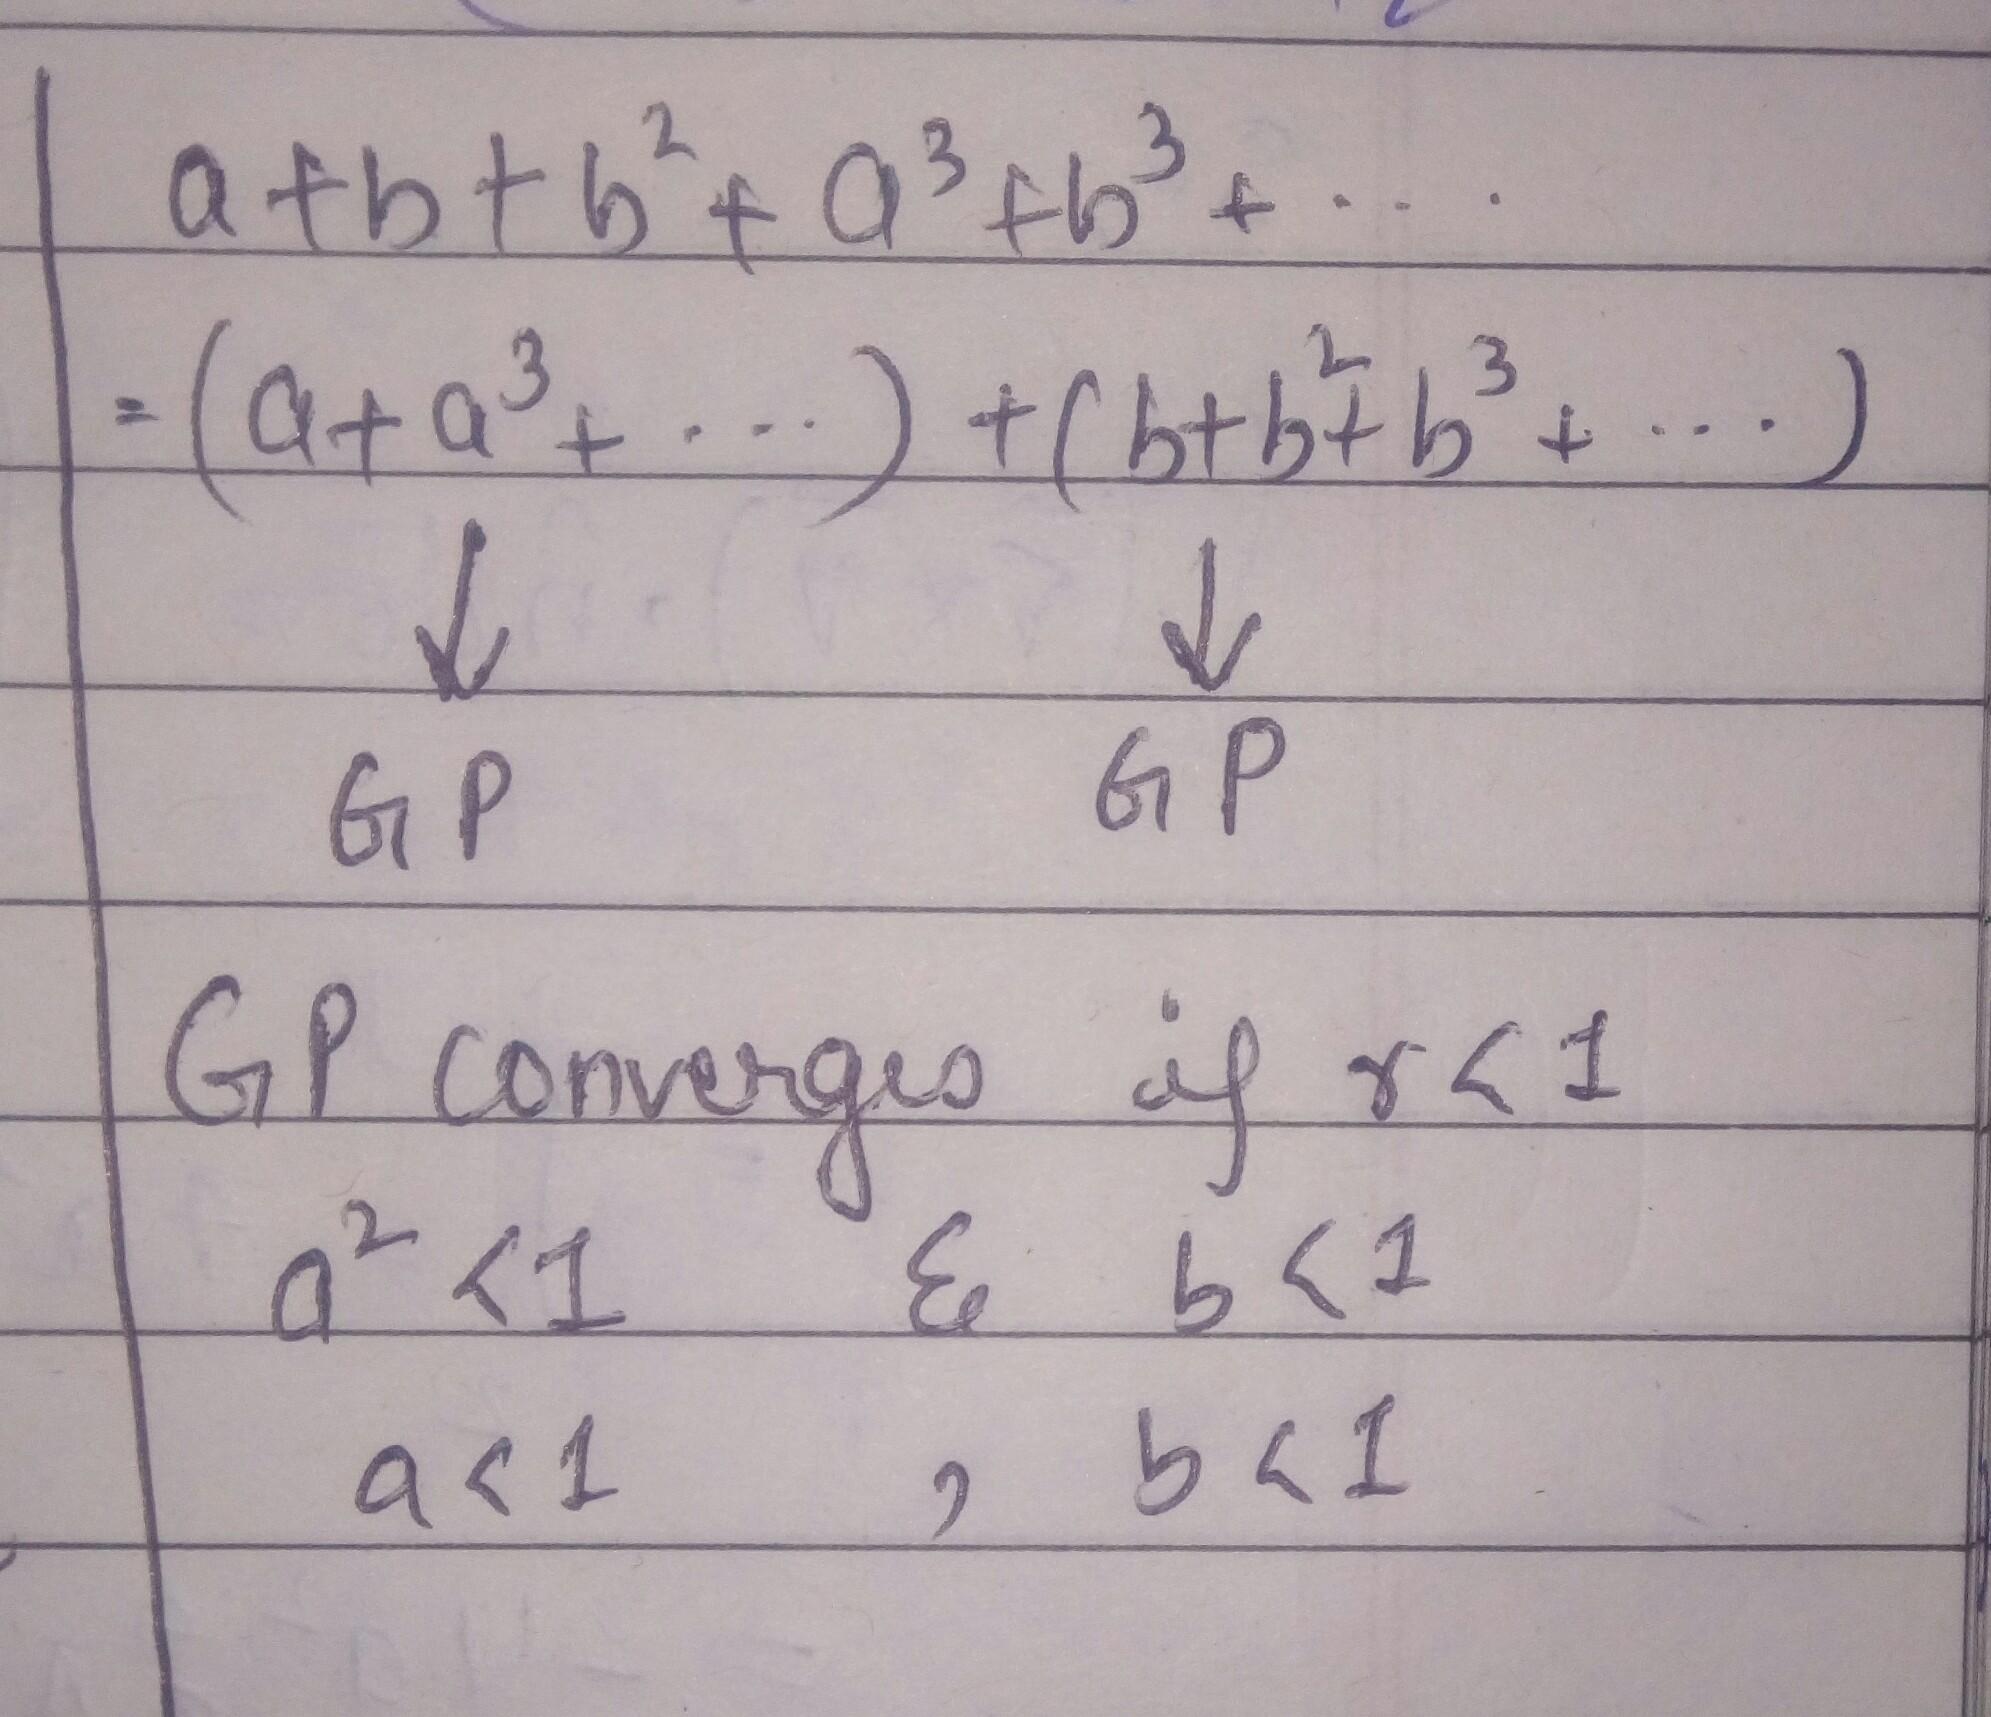 a + b + b² + a³ + b³ + ....
= (a + a³ + ....) + (b + b² + b³ + ....)
↓ ↓
GP GP
GP converges if r < 1
a² < 1 & b < 1
a < 1 , b < 1